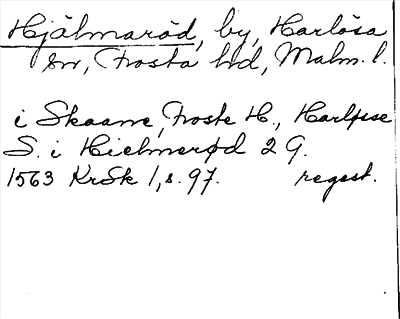 Hjälmaröd, by, Harlösa
sn, Frosta hd, Malm. l.
i Skaane, Froste H., Harløse
S. i Hielmerød 2 G.
1563 KrSk 1, s. 97. regest.